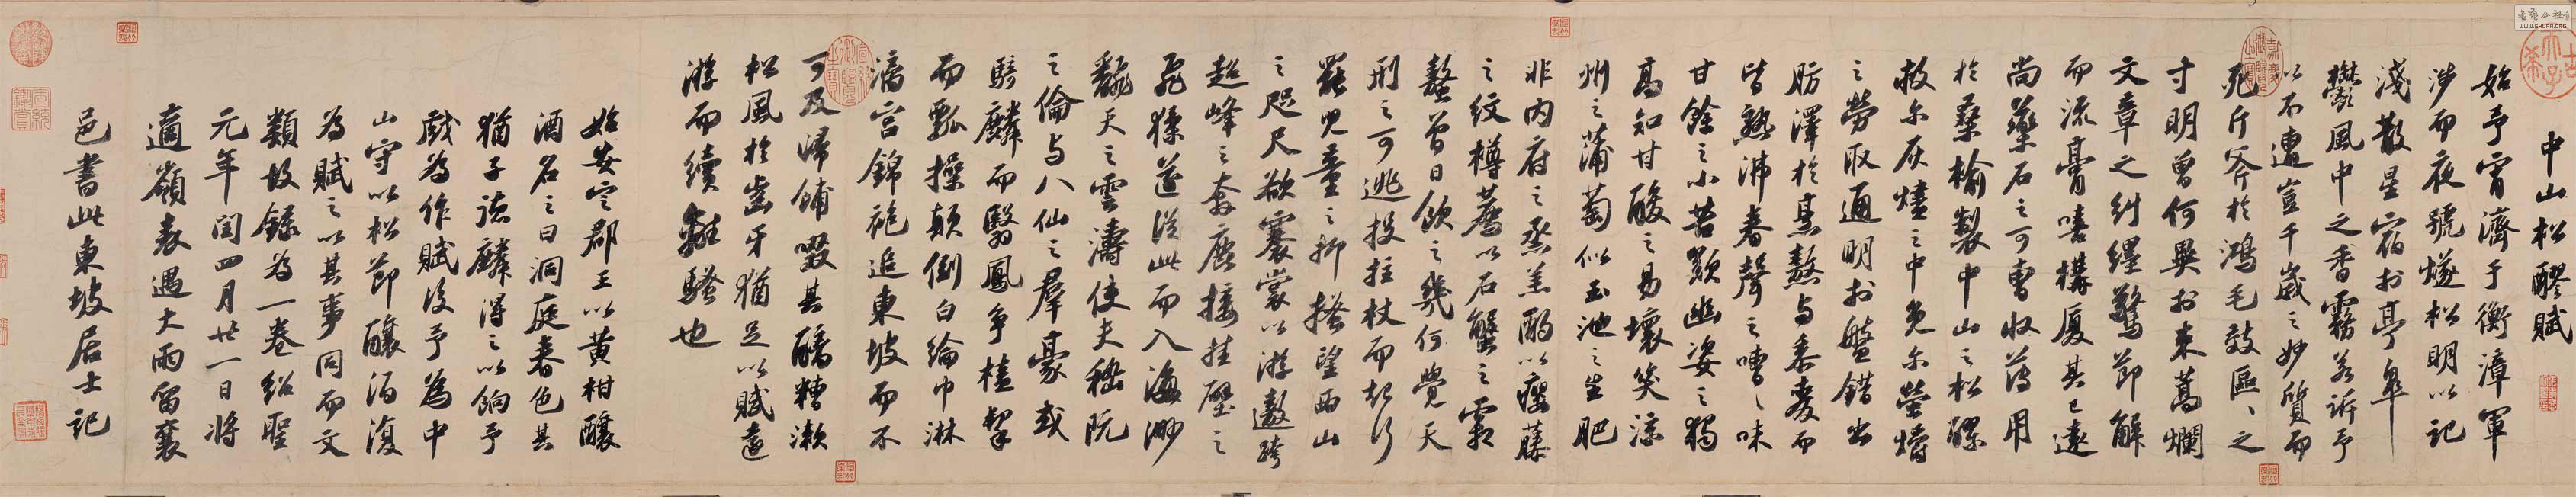 中山松醪賦
始予宵濟于衡漳軍
涉而夜號燧松明以記
淺散星宿於亭皋
鬱風中之香霧若訴予
以不遭豈千歲之妙質而
死斤斧於鴻毛效區區之
寸明曾何異於束蒿爛
文章之糾纆驚節解
而流膏嘻構廈其已遠
尚藥石之可曹收薄用
於桑榆製中山之松醪
救爾灰燼之中免爾螢爝
之勞取通明於盤錯出
肪澤於烹熬與黍麥而
皆熟沸舂聲之嘈嘈味
甘餘之小苦歎幽姿之獨
高知甘酸之易壞笑涼
州之蒲萄似玉池之生肥
非內府之蒸羔酌以癭藤
之紋樽薦以石蟹之霜
螯曾日飲之幾何覺天
刑之可逃投拄杖而起行
罷兒童之抑搔望西山
之咫尺欲褰裳以游遨跨
超峰之奔鹿接挂壁之
飛猱遂從此而入海渺
翻天之雲濤使夫嵇阮
之倫與八仙之羣豪或
騎麟而翳鳳爭榼挈
而瓢操顛倒白綸巾淋
漓宮錦袍追東坡而不
可及歸餔歠其醨糟漱
松風於齒牙猶足以賦遠
游而續離騷也
始安定郡王以黃柑釀
酒名之曰洞庭春色其
猶子德麟得之以餉予
戲為作賦後予為中
山守以松節釀酒復
為賦之以其事同而文
類故錄為一卷紹聖
元年閏四月廿一日將
適嶺表遇大雨留襄
邑書此東坡居士記
WWW.SHUFA.ORG